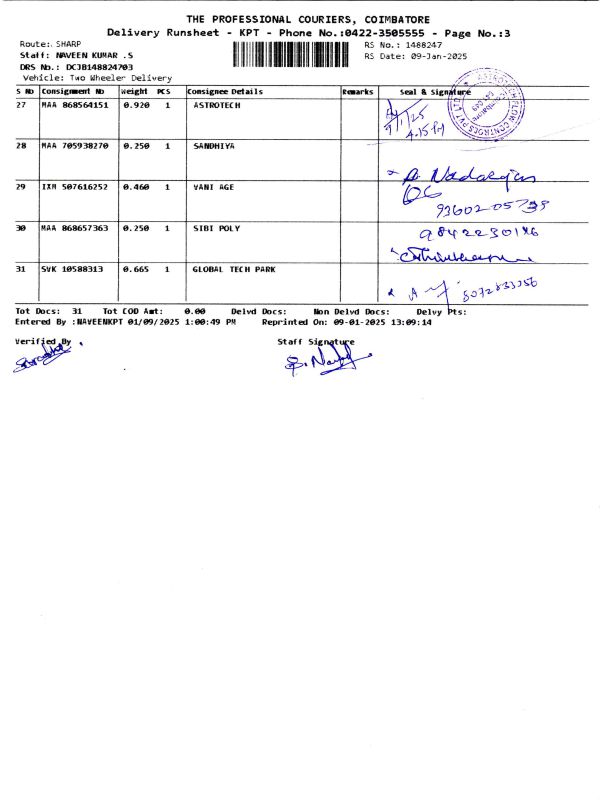 THE PROFESSIONAL COURIERS, COIMBATORE
Delivery Runsheet - KPT - Phone No.:0422-3505555 - Page No.:3
Route: SHARP
RS No.: 1488247
Staff: NAVEEN KUMAR .S
RS Date: 09-Jan-2025
DRS No.: DCJB148824703
Vehicle: Two Wheeler Delivery
S No Consignment No Weight PCS Consignee Details Remarks Seal & Signature
27 MAA 868564151 0.920 1 ASTROTECH
9/1/25
4.15 PM
ASTROTECH FLOW CONTROLS PVT LTD
28 MAA 705938270 0.250 1 SANDHIYA
29 IXM 507616252 0.460 1 VANI AGE
93602-05739
30 MAA 868657363 0.250 1 SIBI POLY
31 SVK 10588313 0.665 1 GLOBAL TECH PARK
Tot Docs: 31 Tot COD Amt: 0.00 Delvd Docs: Non Delvd Docs: Delvy Pts:
Entered By :NAVEENKPT 01/09/2025 1:00:49 PM Reprinted On: 09-01-2025 13:09:14
Verified By Staff Signature